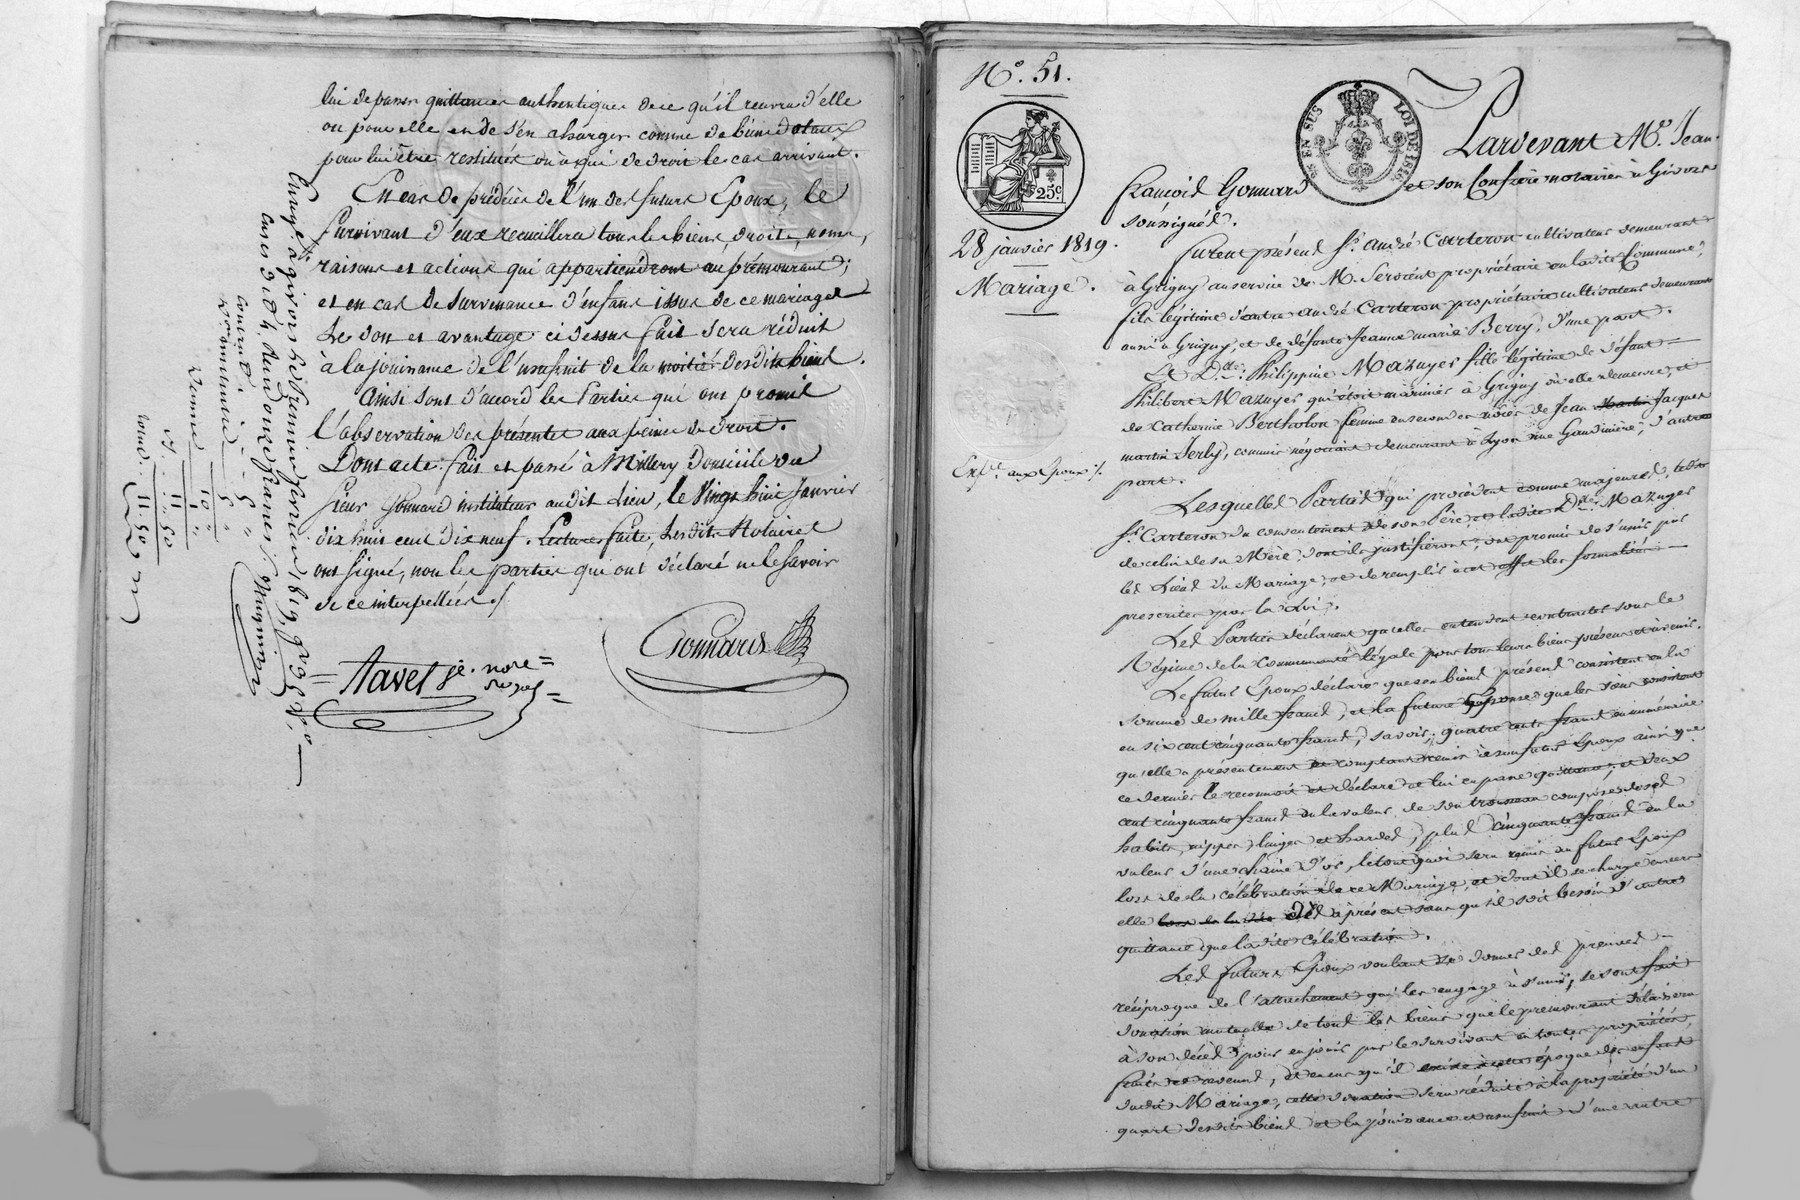 lui de passer quittances authentiques de ce qu'il recevra d'elle
ou pour elle et de s'en charger comme de biens dotaux
pour lui être restitués ou à qui de droit le cas arrivant.
En cas de prédécès de l'un des futurs Epoux, le
survivant d'eux recueillera tous les biens, droits, noms,
raisons et actions qui appartiendront au prémourant;
et en cas de survenance d'enfans issus de ce mariage
Le don et avantage ci dessus fait sera réduit
à la jouissance de l'usufruit de la moitié desdits biens.
Ainsi sont d'accord les Parties qui ont promis
l'observation des présentes aux peines de droit.
Dont acte: fait et passé à Millery domicile du
sieur Gonnard instituteur audit lieu, le vingt huit Janvier
dix huit cent dix neuf. Lecture faite, lesdits Notaires
ont signé, non les parties qui ont déclaré ne le savoir
de ce interpellées ./
Gonnard
Enregté à givors le premier fevrier 1819,
reçu onze francs
10 "
1 "
11..50
11.50
N.o 51.
EN SUS
LOI DE 1816
Pardevant M.e Jean
françois Gonnard et son Confrère notaires à Givors
soussignés.
25c.
28 janvier 1819.
Mariage.
Exp.é aux Epoux ./.
furent présens S.r André Carteron cultivateur demeurant
à Grigny au service de M. Servient propriétaire en ladite Commune,
fils légitime d'autre André Carteron propriétaire cultivateur demeurant
aussi à Grigny, et de défunte Jeanne marie Berry, d'une part.
Et D.lle Philippine Mazuyer fille légitime de défunt
Philibert Mazuyer qui étoit marinier à Grigny où elle demeure, et
de Catherine Bertholon femme en secondes nôces de Jean Jacques
martin Serly, commis négociant demeurant à Lyon rue, d'autre
part.
Lesquelles Parties qui procèdent comme majeures, ledit
S.r Carteron du consentement de son Père et ladite D.lle Mazuyer
de celui de sa Mère, dont ils justifieront, ont promis de s'unir par
les Liens du Mariage, et de remplir à cet effet les formalités
prescrites par la Loi.
Les Parties déclarent qu'elles entendent contracter sous le
Régime de la Communauté légale pour tous leurs biens présens et à venir.
Le futur Epoux déclare que ses biens présens consistent en la
somme de mille francs, et la future Epouse que les siens consistent
en six cent cinquante francs, savoir; quatre cents francs en numéraire
qu'elle a presentement et comptant remis à son futur Epoux ainsi que
ce dernier le reconnoit et déclare et lui en passe quittance, et deux
cent cinquante francs en la valeur de son trousseau composé de ses
habits, nippes, linges et hardes, plus cinquante francs en la
valeur d'une chaine d'or, le tout quoi sera remis au futur Epoux
lors de la célébration de ce Mariage, et dont il se charge envers
elle dès à présent sans qu'il soit besoin d'autre
quittance que ladite célébration.
Les futurs Epoux voulant se donner des preuves
réciproque de l'attachement qui les engage à s'unir, se sont fait
donation mutuelle de tous les biens que le prémourant délaissera
à son décès pour en jouir par le survivant en toutes propriétés,
fruits et revenus, et en cas qu'il existe à cette époque des enfans
dudit Mariage, cette donation sera réduite à la propriété d'un
quart desdits biens et la jouissance et usufruit d'une autre